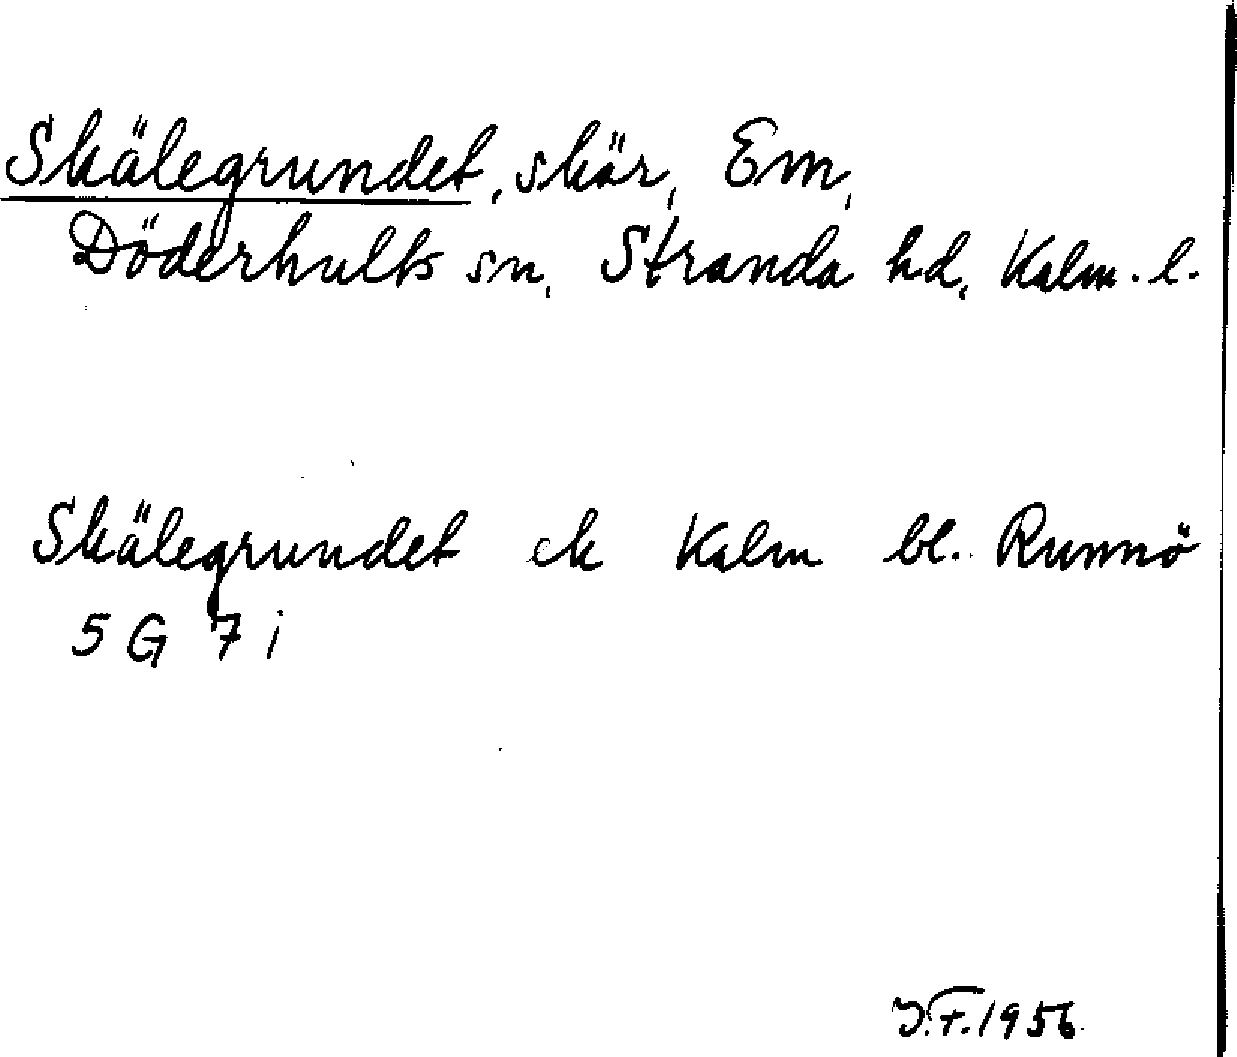 Skälegrundet, skär, Em,
Döderhults sn, Stranda hd, Kalm. l.
Skälegrundet ek Kalm bl. Runnö
5 G 7 i
J.F. 1956